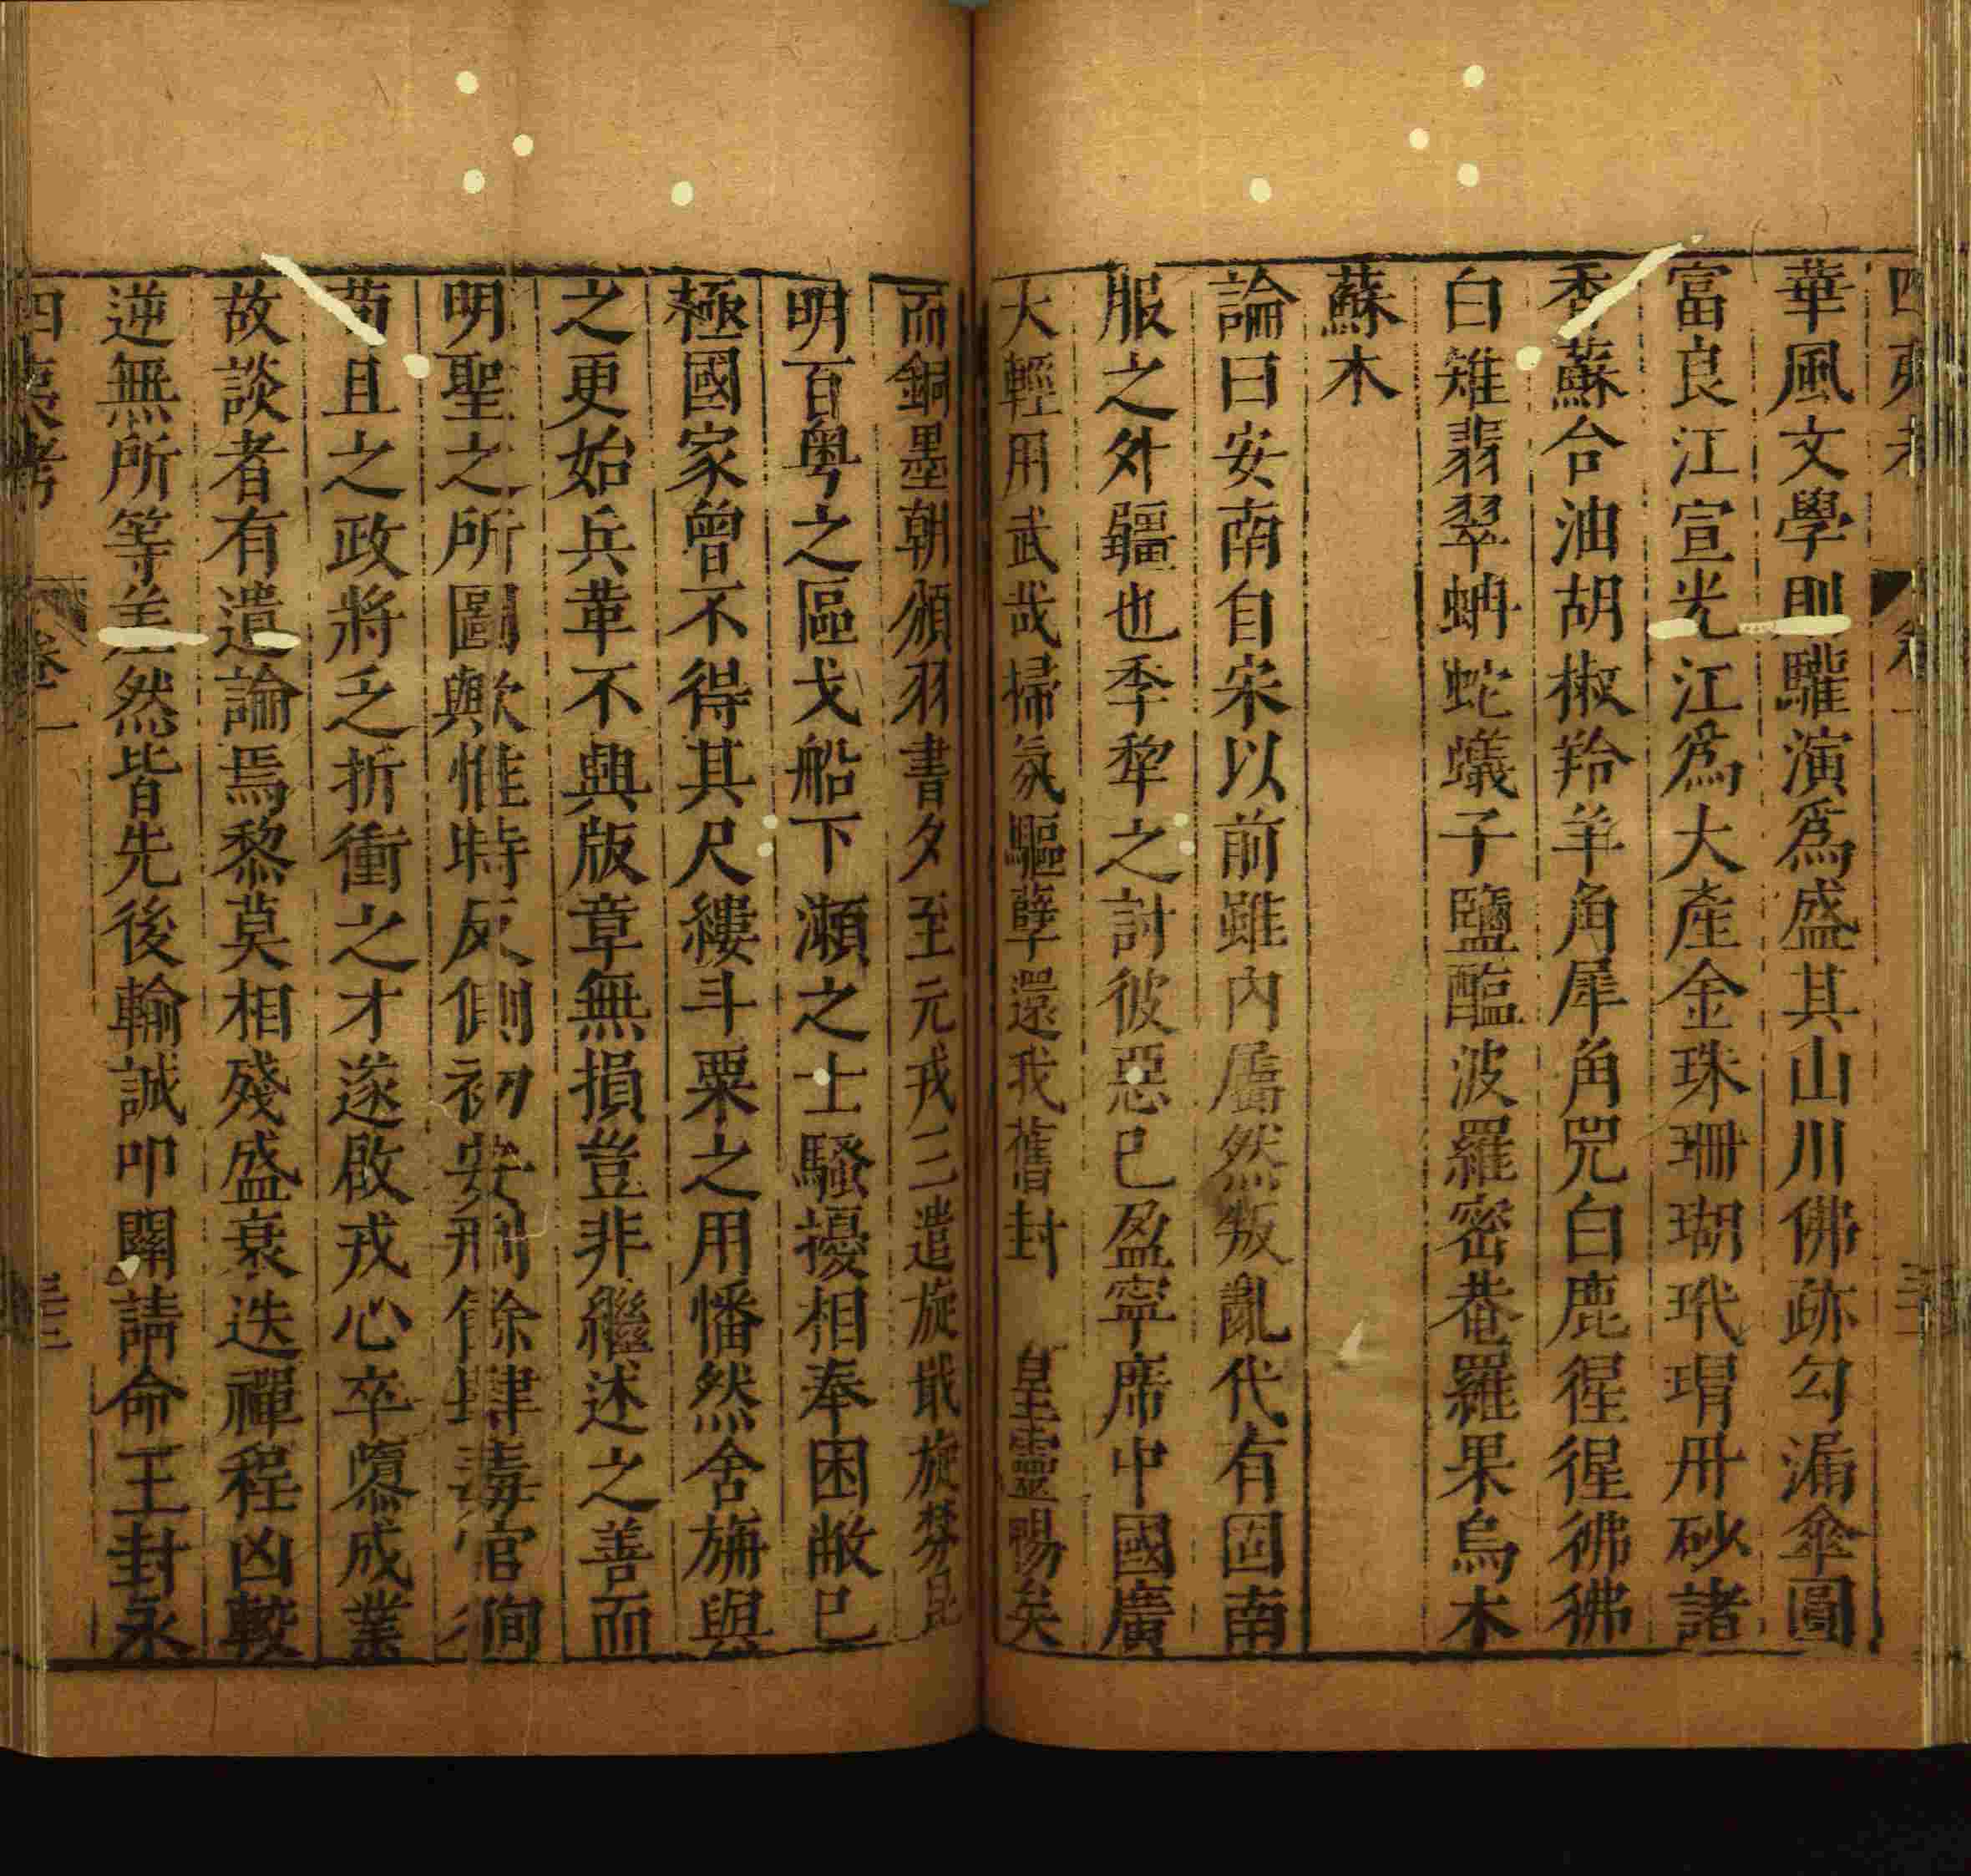 華風文學則驩演爲盛其山川佛跡勾漏傘圓
富良江宣光江爲大產金珠珊瑚玳瑁丹砂諸
香蘇合油胡椒羚羊角犀角兕白鹿猩猩狒狒
白雉翡翠蚺蛇蟻子鹽醢波羅密菴羅果烏木
蘇木
論曰安南自宋以前雖內屬然叛亂代有固南
服之外疆也季犂之討彼惡已盈寧席中國廣
大輕用武哉掃氛驅孽還我舊封 皇靈暢矣
而銅墨朝頒羽書夕至元戎三遣旋戢旋棼昆
明百粤之區戈船下瀨之士騷擾相奉困敝已
極國家曾不得其尺縷斗粟之用幡然舍旃與
之更始兵革不興版章無損豈非繼述之善而
明聖之所圖歟惟時反側初安刑餘肆毒官徇
苟且之政將乏折衝之才遂啟戎心卒隳成業
故談者有遺論焉黎莫相殘盛衰迭禪程凶較
逆無所等差然皆先後輸誠叩關請命王封永
四夷考 卷一